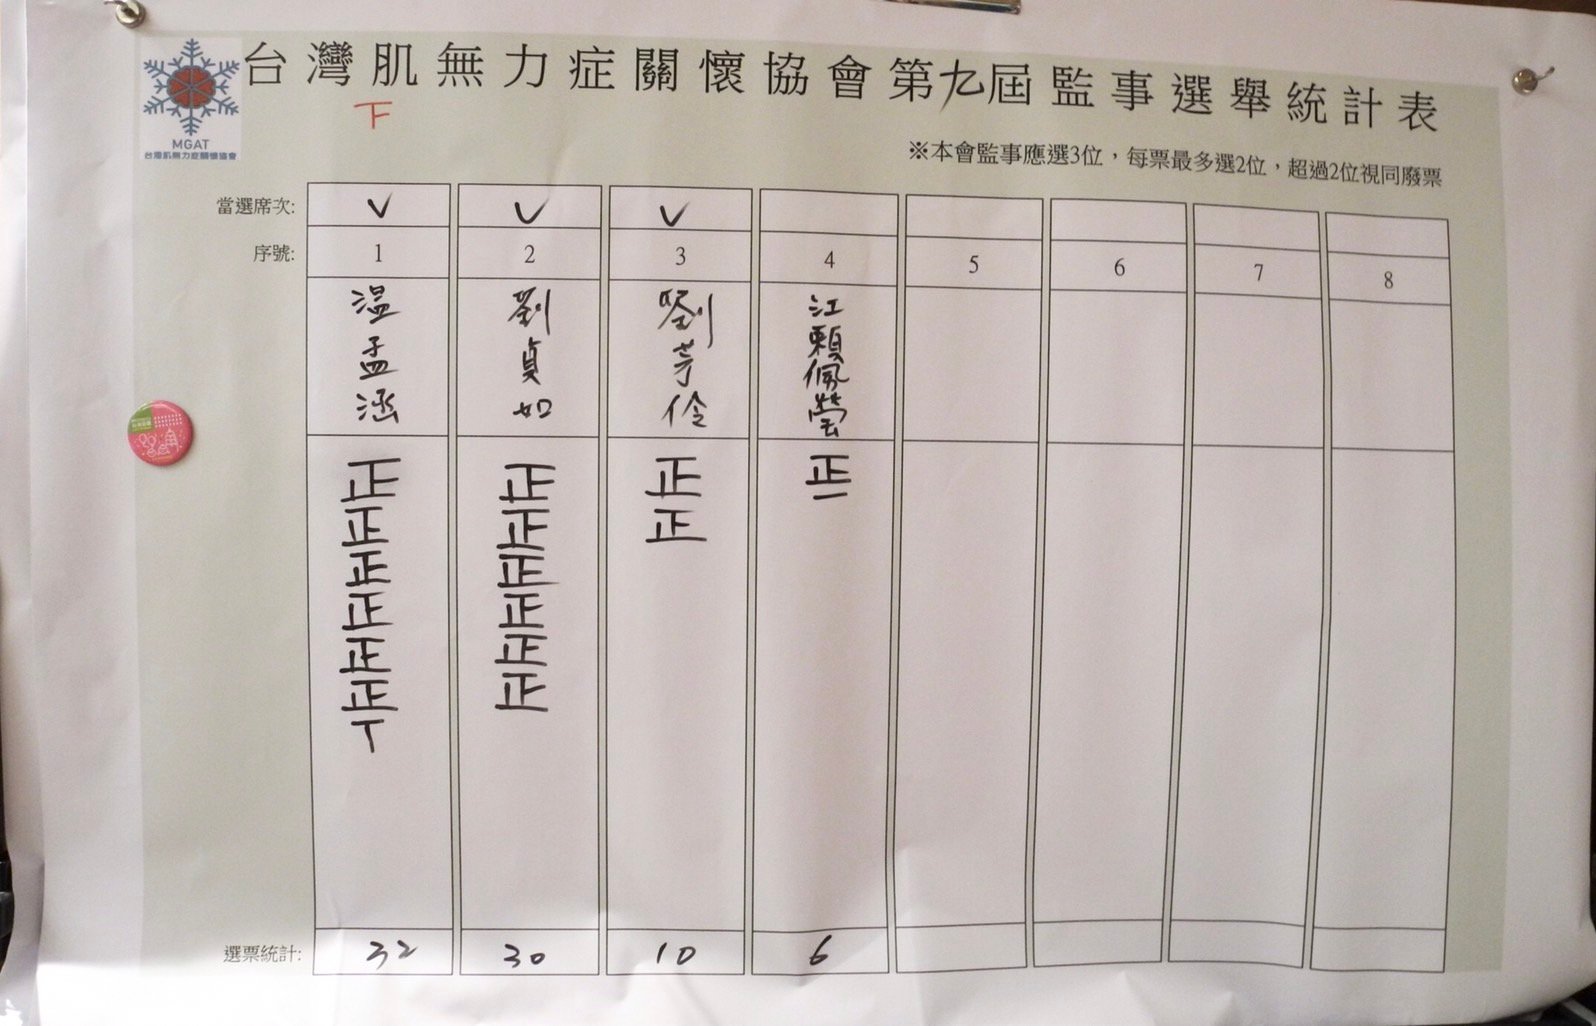 台灣肌無力症關懷協會第九屆監事選舉統計表
MGAT
台灣肌無力症關懷協會
下
※本會監事應選3位，每票最多選2位，超過2位視同廢票
當選席次: V V V
序號: 1 2 3 4 5 6 7 8
温孟涵
劉貞如
劉芳伶
江賴佩瑩
正正正正正正丅
正正正正正正
正正
正一
選票統計: 32 30 10 6